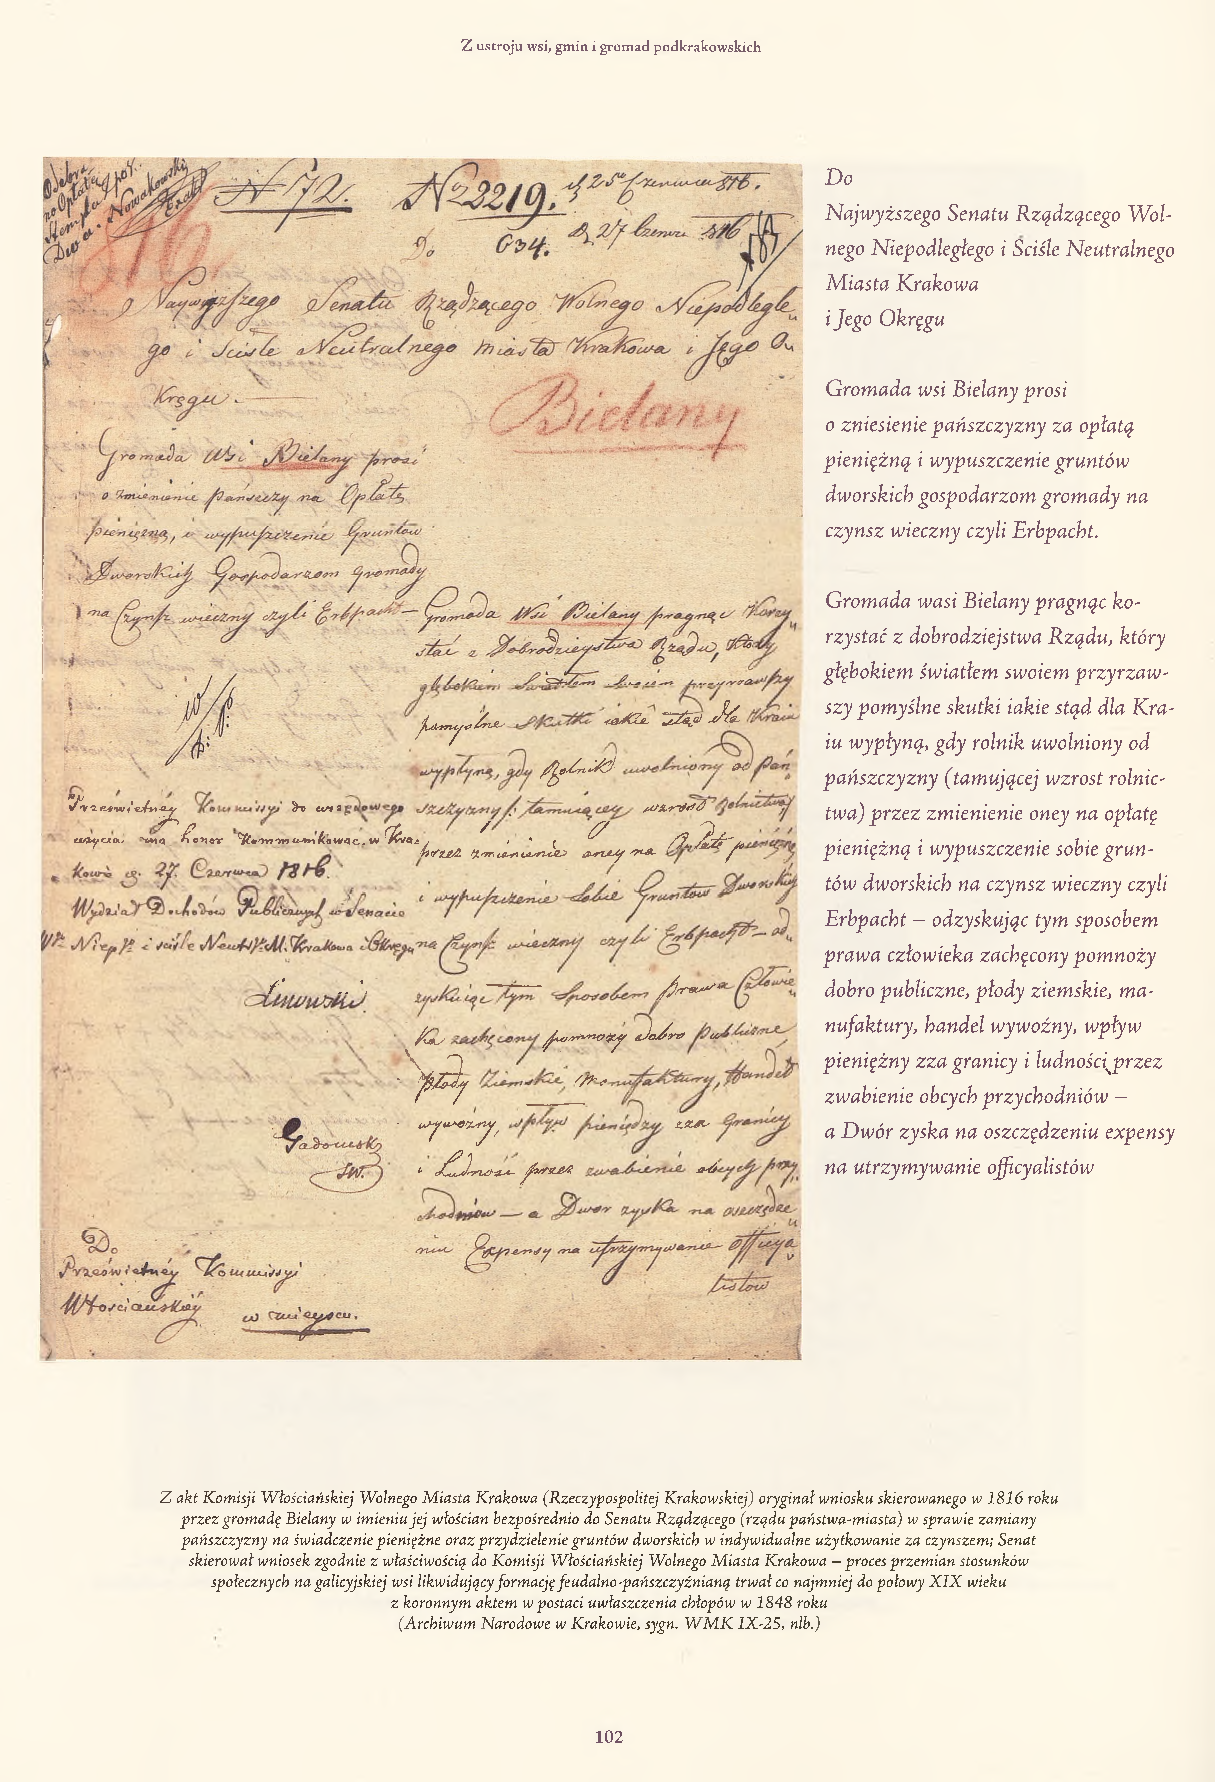 Z ustroju wsi, gmin i gromad podkrakowskich
N 72.
No 2219.
d 25o Czerwca 816.
D. 27 Czerwca 816
Do
634.
Naywyższego Senatu Rządzącego Wolnego Niepodległe„
go i Sciśle Neutralnego Miasta Krakowa i Jego O„
Kręgu.—
Bielany
Gromada Wsi Bielany prosi
o zmienienie pańszczy na Opłatę
pieniężną, i wypuszczenie Gruntów
Dworskich Gospodarzom Gromady
na Czynsz wieczny czyli Erbpacht—
Gromada Wsi Bielany pragnąc Korzy„
stać z Dobrodzieystwa Rządu, który
głębokiem Swiatłem Swoiem przyrzawszy
pomyślne Skutki iakie ztąd dla Kraiu
wypłyną, gdy Rolnik uwolniony od Pań„
szczyzny /: tamuiącey wzrost Rolnictwa/
przez zmienienie oney na Opłatę pieniężną
i wypuszczenie Sobie Gruntów Dworskich
na Czynsz wieczny czyli Erbpacht — od„
zyskuiąc tym Sposobem Prawa Człowie„
ka zachęcony pomnoży dobro Publiczne,
płody Ziemskie, Manufaktury, Handel
wywoźny, wpływ pieniędzy zza Granicy
i Ludność przez zwabienie obcych przy„
chodniów — a Dwor zyska na oszczędze„
niu Expensy na utrzymywanie Officya„
listów
Prześwietney Kommissyi do urzędowego
użycia ma honor Kommunikować. w Kra„
kowie d. 27. Czerwca 1816.
Wydział Dochodów Publicznych w Senacie
Wo Niepo i sciśle Neuto M. Krakowa i Okręgu
Linowski.
Gadomski
SW.
Do
Prześwietney Kommissyi
Włościańskiey
w mieyscu.
Do
Najwyższego Senatu Rządzącego Wol-
nego Niepodległego i Ściśle Neutralnego
Miasta Krakowa
i Jego Okręgu
Gromada wsi Bielany prosi
o zniesienie pańszczyzny za opłatą
pieniężną i wypuszczenie gruntów
dworskich gospodarzom gromady na
czynsz wieczny czyli Erbpacht.
Gromada wasi Bielany pragnąc ko-
rzystać z dobrodziejstwa Rządu, który
głębokiem światłem swoiem przyrzaw-
szy pomyślne skutki iakie stąd dla Kra-
iu wypłyną, gdy rolnik uwolniony od
pańszczyzny (tamującej wzrost rolnic-
twa) przez zmienienie oney na opłatę
pieniężną i wypuszczenie sobie grun-
tów dworskich na czynsz wieczny czyli
Erbpacht – odzyskując tym sposobem
prawa człowieka zachęcony pomnoży
dobro publiczne, płody ziemskie, ma-
nufaktury, handel wywoźny, wpływ
pieniężny zza granicy i ludności przez
zwabienie obcych przychodniów –
a Dwór zyska na oszczędzeniu expensy
na utrzymywanie officyalistów
Z akt Komisji Włościańskiej Wolnego Miasta Krakowa (Rzeczypospolitej Krakowskiej) oryginał wniosku skierowanego w 1816 roku
przez gromadę Bielany w imieniu jej włościan bezpośrednio do Senatu Rządzącego (rządu państwa-miasta) w sprawie zamiany
pańszczyzny na świadczenie pieniężne oraz przydzielenie gruntów dworskich w indywidualne użytkowanie za czynszem; Senat
skierował wniosek zgodnie z właściwością do Komisji Włościańskiej Wolnego Miasta Krakowa – proces przemian stosunków
społecznych na galicyjskiej wsi likwidujący formację feudalno-pańszczyźnianą trwał co najmniej do połowy XIX wieku
z koronnym aktem w postaci uwłaszczenia chłopów w 1848 roku
(Archiwum Narodowe w Krakowie, sygn. WMK IX-25, nlb.)
102